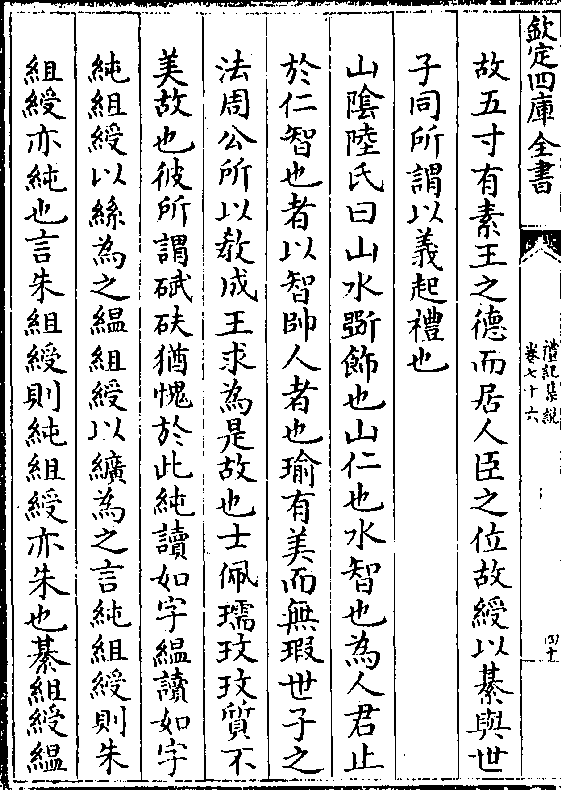 欽定四庫全書
禮記集說
卷七十六
四十
故五寸有素王之德而居人臣之位故綬以綦與世
子同所謂以義起禮也
山隂陸氏曰山水斲飾也山仁也水智也為人君止
於仁智也者以智帥人者也瑜有美而無瑕世子之
法周公所以敎成王求為是故也士佩瓀玟玟質不
美故也彼所謂碔砆猶愧於此純讀如字縕讀如字
純組綬以絲為之緼組綬以纊為之言純組綬則朱
組綬亦純也言朱組綬則純組綬亦朱也綦組綬緼